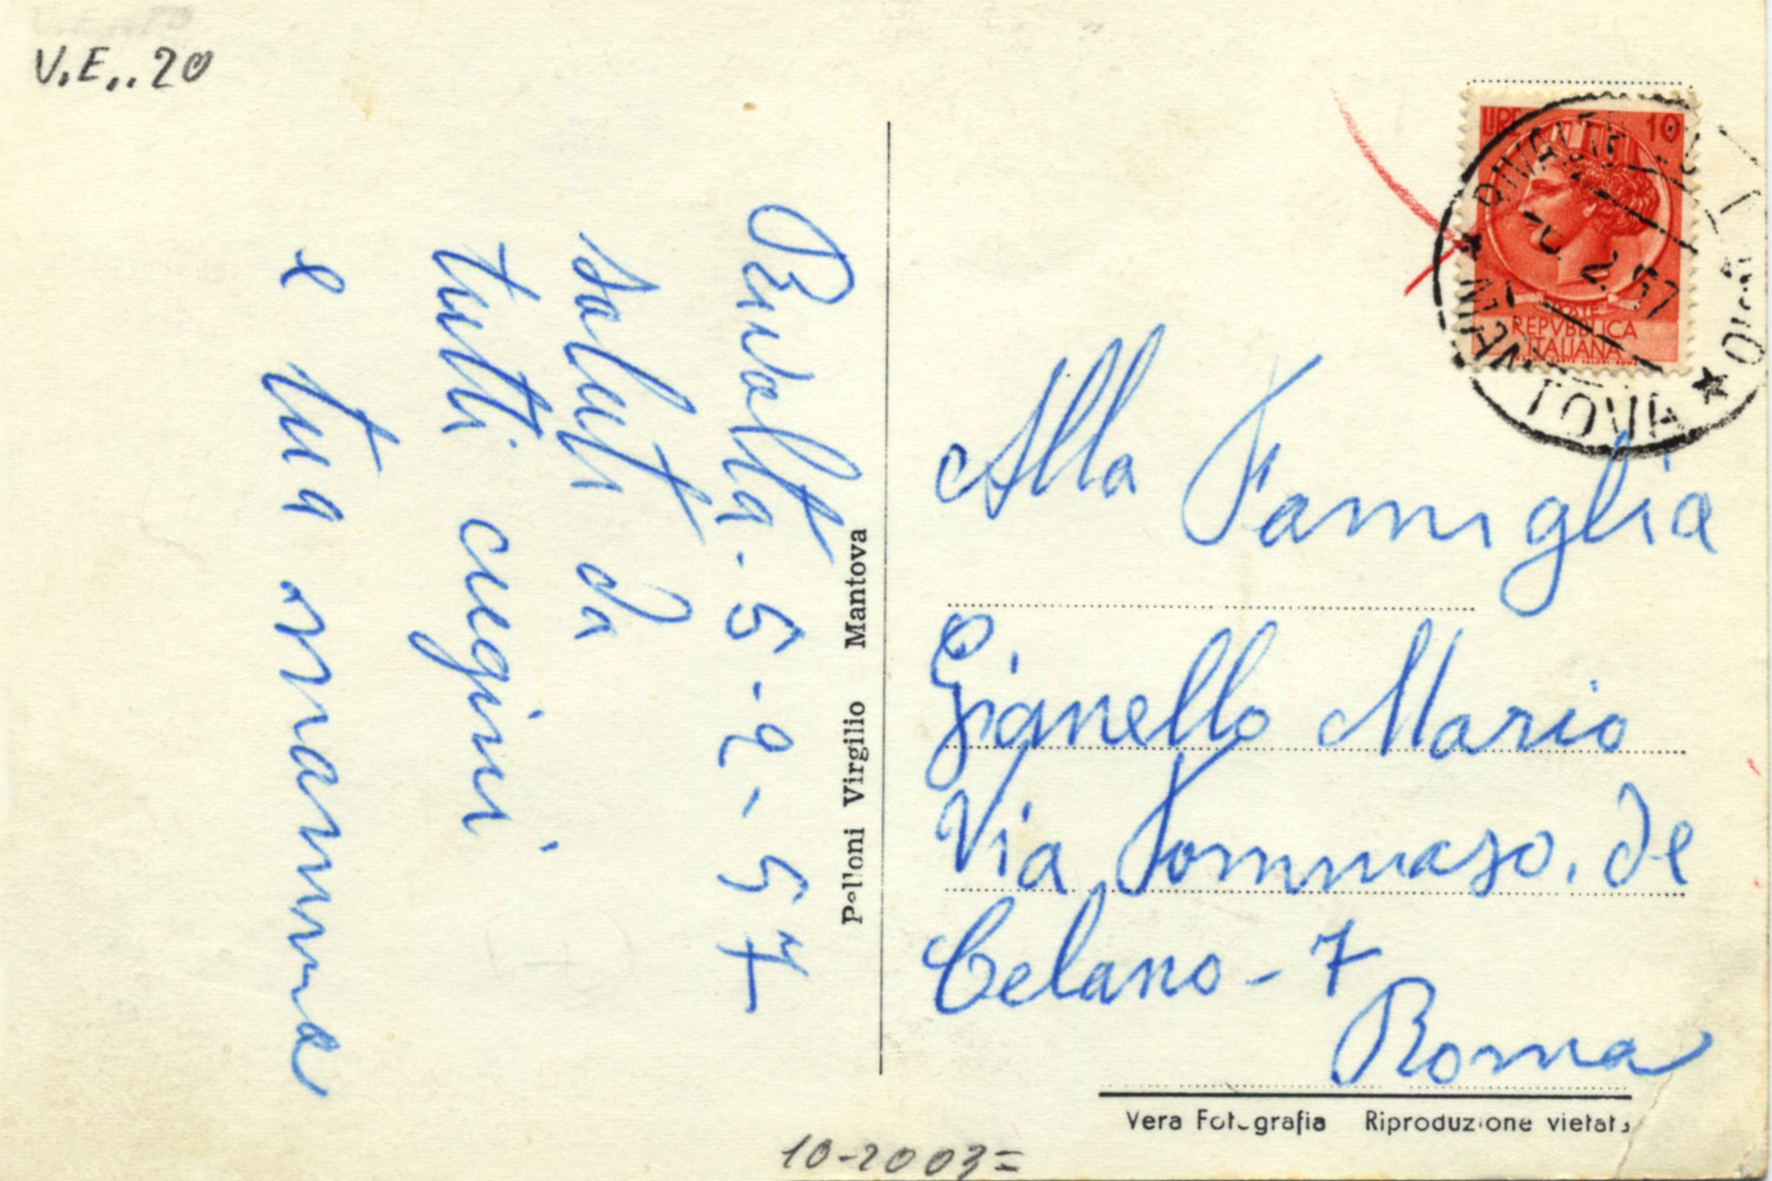 V.E...20
Rivalta - 5-2-57
saluti da
tutti cugini
e tua mamma
Pelloni Virgilio Mantova
LIRE 10
POSTE
REPVBBLICA
ITALIANA
RIVALTA
2.57
Alla Famiglia
Gianello Mario
Via Tommaso. de
Celano - 7
Roma
Vera Fotografia Riproduzione vietata
10-2003=